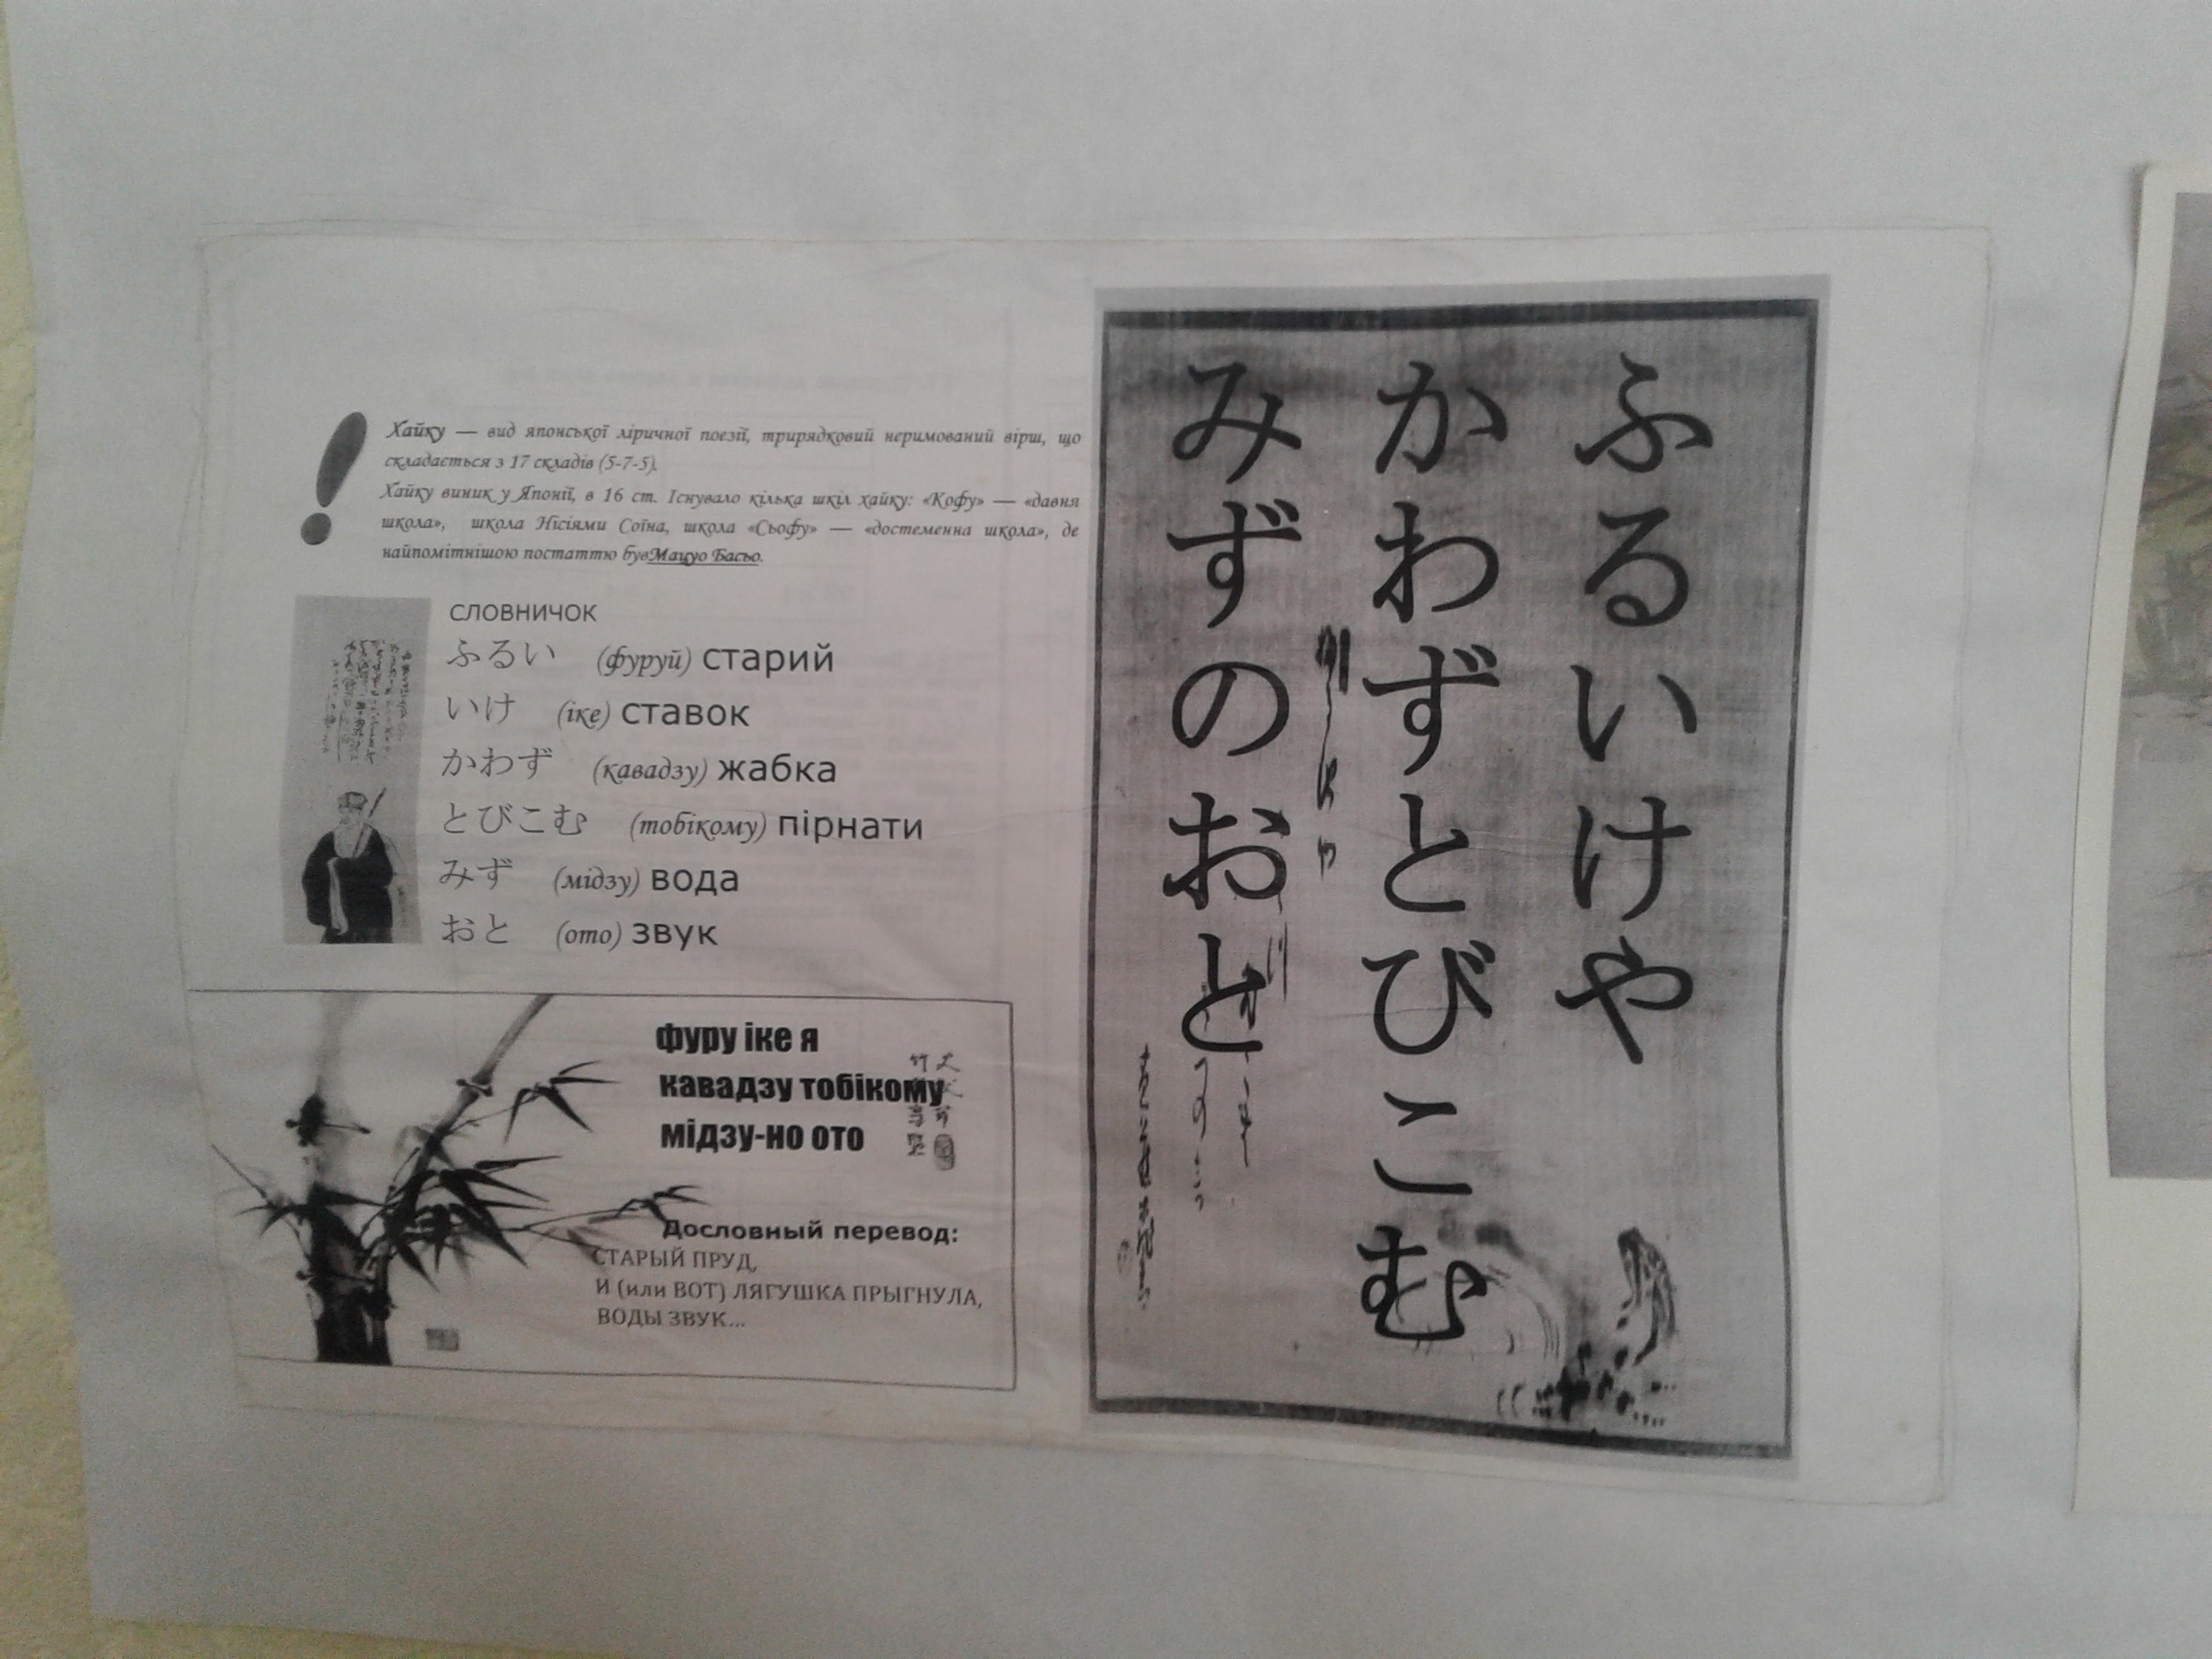 Хайку — вид японської ліричної поезії, трирядковий неримований вірш, що
складається з 17 складів (5-7-5).
Хайку виник у Японії, в 16 ст. Існувало кілька шкіл хайку: «Кофу» — «давня
школа», школа Нісіями Соїна, школа «Сьофу» — «достеменна школа», де
найпомітнішою постаттю був Мацуо Басьо.
словничок
ふるい (фуруй) старий
いけ (іке) ставок
かわず (кавадзу) жабка
とびこむ (тобікому) пірнати
みず (мідзу) вода
おと (ото) звук
фуру іке я
кавадзу тобікому
мідзу-но ото
Дословный перевод:
СТАРЫЙ ПРУД,
И (или ВОТ) ЛЯГУШКА ПРЫГНУЛА,
ВОДЫ ЗВУК...
ふるいけや
かわずとびこむ
みずのおと